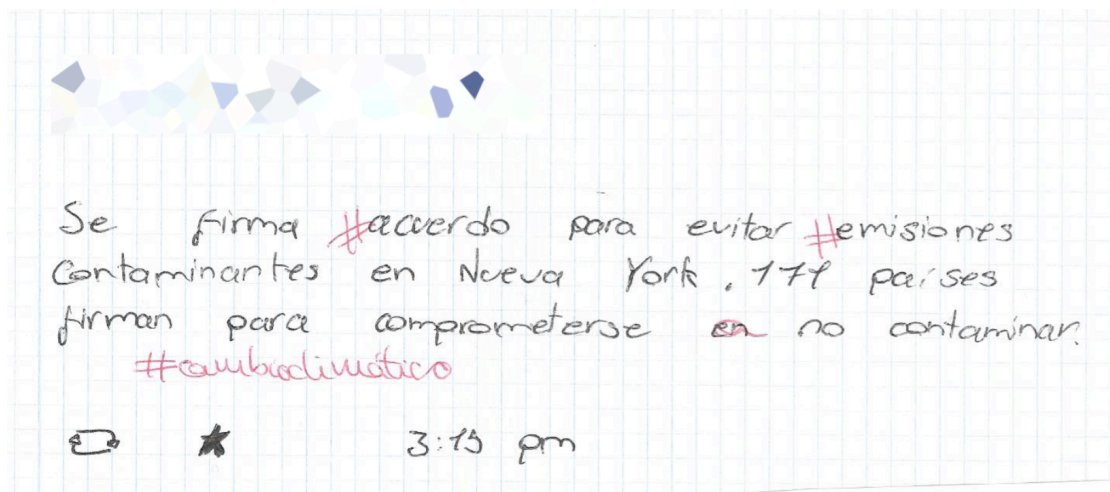 Se firma #acuerdo para evitar #emisiones
contaminantes en Nueva York. 171 países
firman para comprometerse en no contaminar.
#cambioclimático
3:15 pm